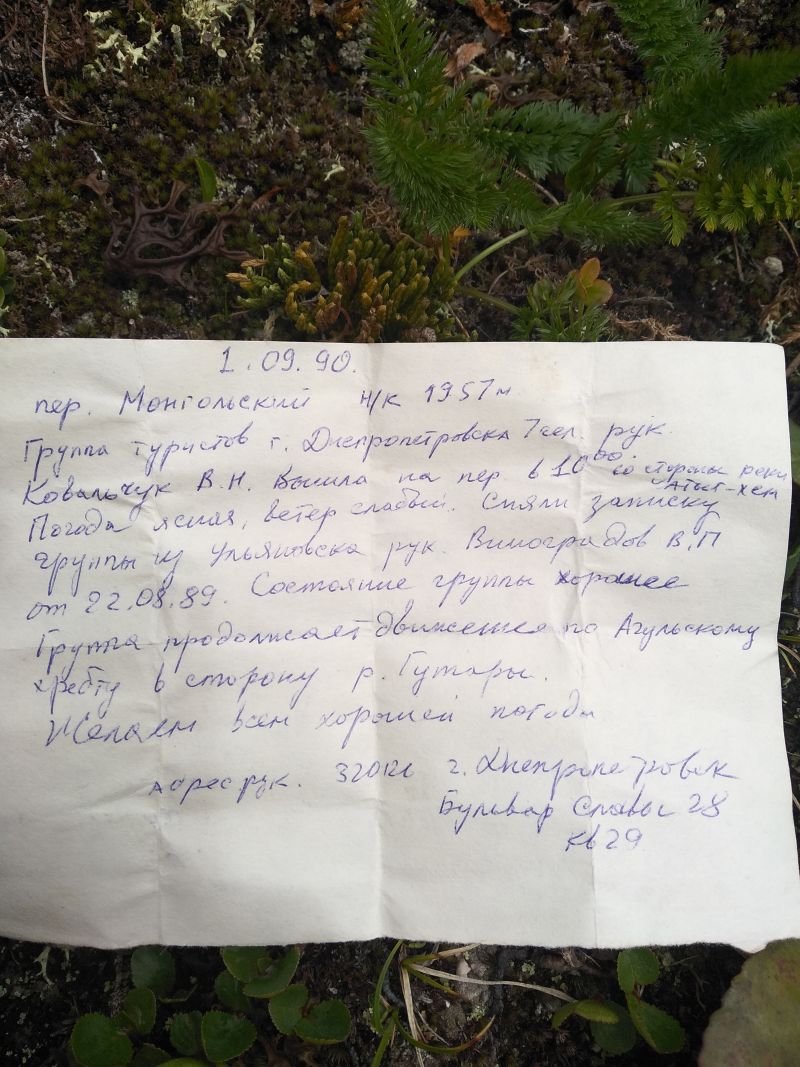 1.09.90.
пер. Монгольский н/к 1957м
Группа туристов г. Днепропетровска 7чел. рук.
Ковальчук В.Н. Вышла на пер. в 10⁰⁰. со стороны реки
Погода ясная, ветер слабый. Сняли записку
группы из Ульяновска рук. Виноградов В.П
от 22.08.89. Состояние группы хорошее
Группа продолжает движение по Агульскому
хребту в сторону р. Гутары.
Желаем всем хорошей погоды
Адрес рук. 320126 г. Днепропетровск
Бульвар Славы 28
кв 29